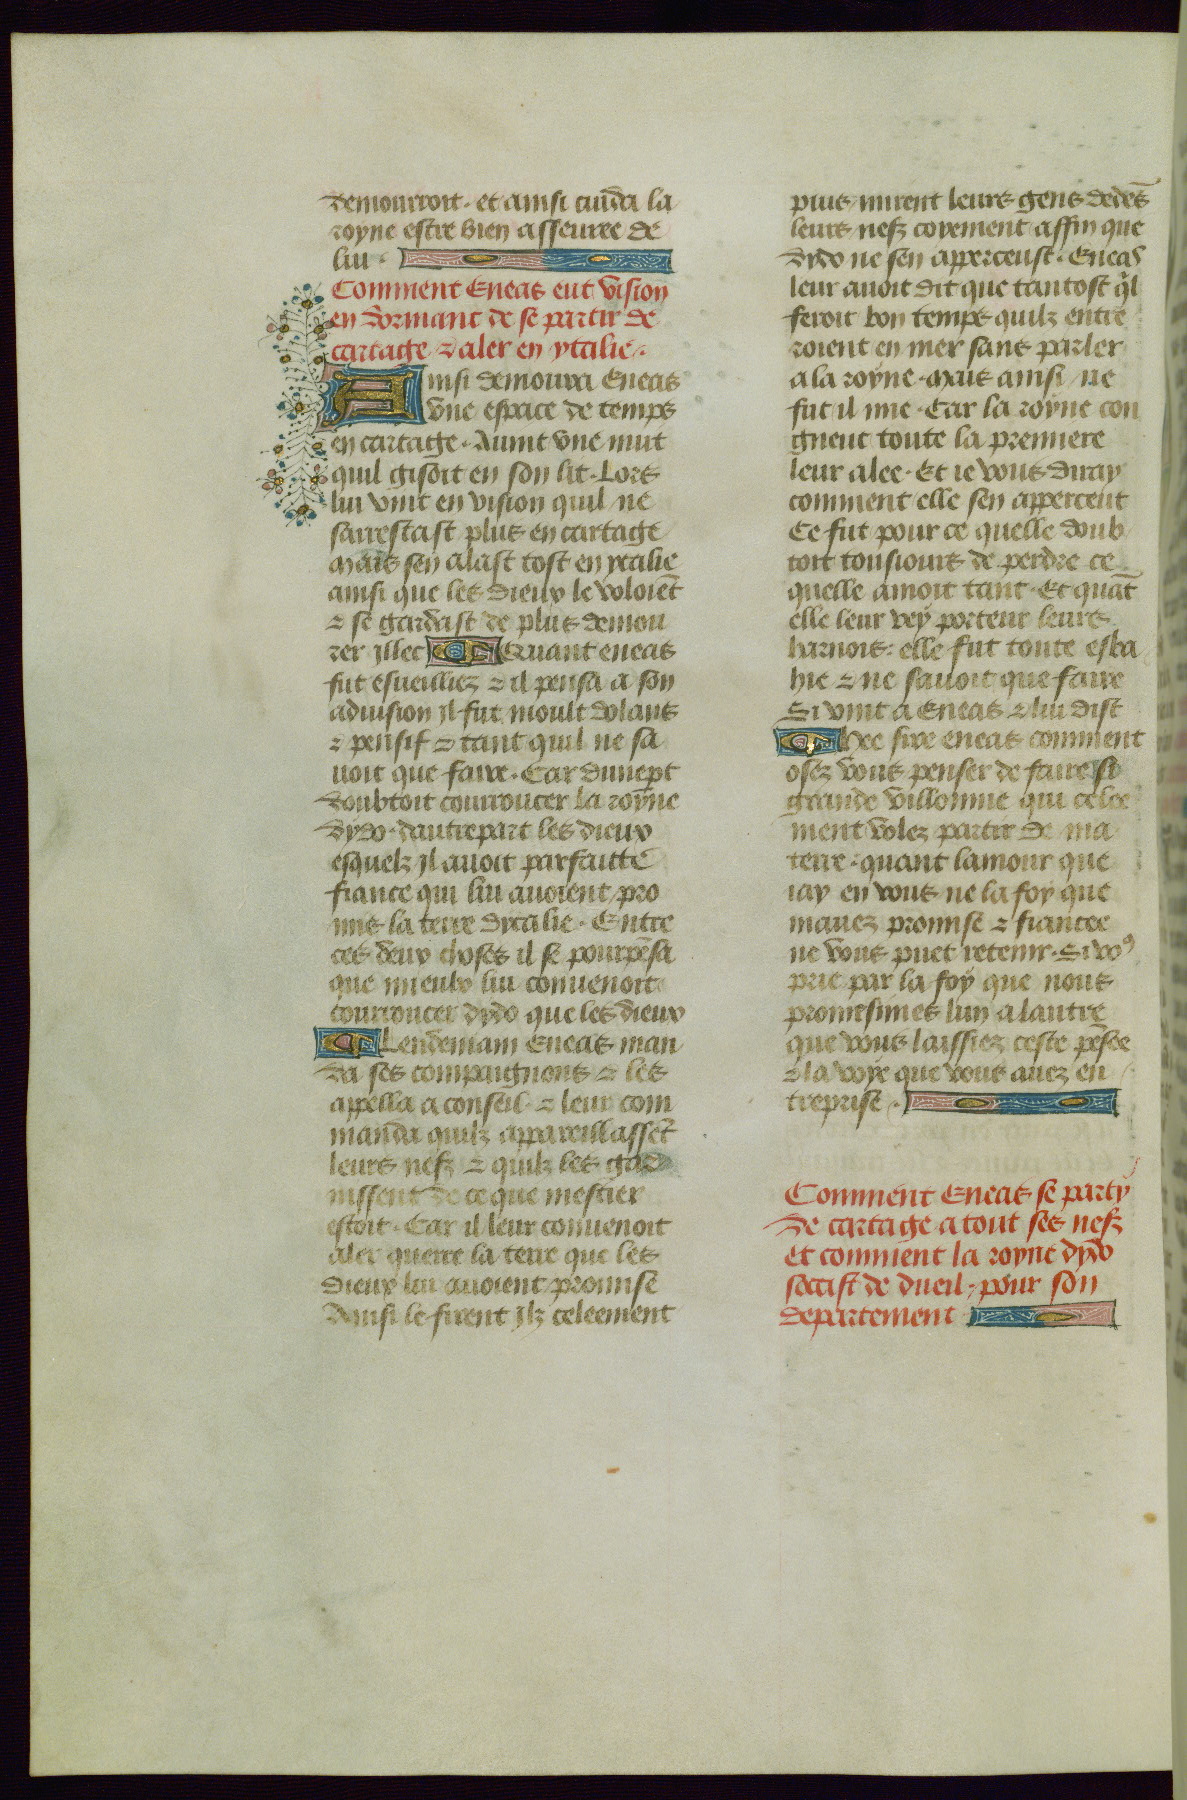 demourroit · et ainsi cuida la
royne estre bien asseuree de
lui ·
Comment Eneas eut vision
en dormant de se partir de
cartage ⁊ aler en ytalie ·
Ainsi demoura Eneas
vne espace de temps
en cartage · Auint vne nuit
quil gisoit en son lit · Lors
lui vint en vision quil ne
sarrestast plus en cartage
Mais sen alast tost en ytalie
ainsi que les dieux le voloiēt
⁊ se gardast de plus demou
rer illec Quant eneas
fut esueilliez ⁊ il pensa a son
aduision il fut moult dolans
⁊ pensif ⁊ tant quil ne sa
uoit que faire · Car dunept
doubtoit courroucer la royne
dydo · dautrepart les dieux
esquelz il auoit parfaitte
fiance qui lui auoient pro
mis la terre dytalie · Entre
ces deux choses il se pourpēsa
que mieulx lui conuenoit
courroucer dydo que les dieux
Lendemain Eneas man
da ses compaignons ⁊ les
appella a conseil · ⁊ leur com
manda quilz appareillassēt
leurs nefz ⁊ quilz les gar
nissent de ce que mestier
estoit · Car il leur conuenoit
aler querre la terre que les
dieux lui auoient promise
Ainsi le firent ilz celeement
puis mirent leurs gens dedēs
leurs nefz coyement affin que
dydo ne sen apperceust · Eneas
leur auoit dit que tantost q̄l
feroit bon temps quilz entre
roient en mer sans parler
a la royne · Mais ainsi ne
fut il mie · Car la royne con
gneut toute la premiere
leur alee · Et ie vous diray
comment elle sen apperceut
Ce fut pour ce quelle doub
toit tousiours de perdre ce
quelle amoit tant · Et quāt
elle leur vey porteur leurs
harnois · elle fut toute esba
hie ⁊ ne sauoit que faire
Si vint a Eneas ⁊ lui dist
Hee sire eneas comment
osez vous penser de faire si
grande villonnie qui celee
ment volez partir de ma
terre · quant lamour que
iay en vous ne la foy que
mauez promise ⁊ fiancee
ne vous puet retenir · Si voꝰ
prie par la foy que nous
promesimes lun a lautre
que vous laissiez ceste pēsee
⁊ la voye que vous auez en
treprise ·
Comment Eneas se party
de cartage a tout ses nefz
et comment la royne dydo
soccist de dueil · pour son
departement